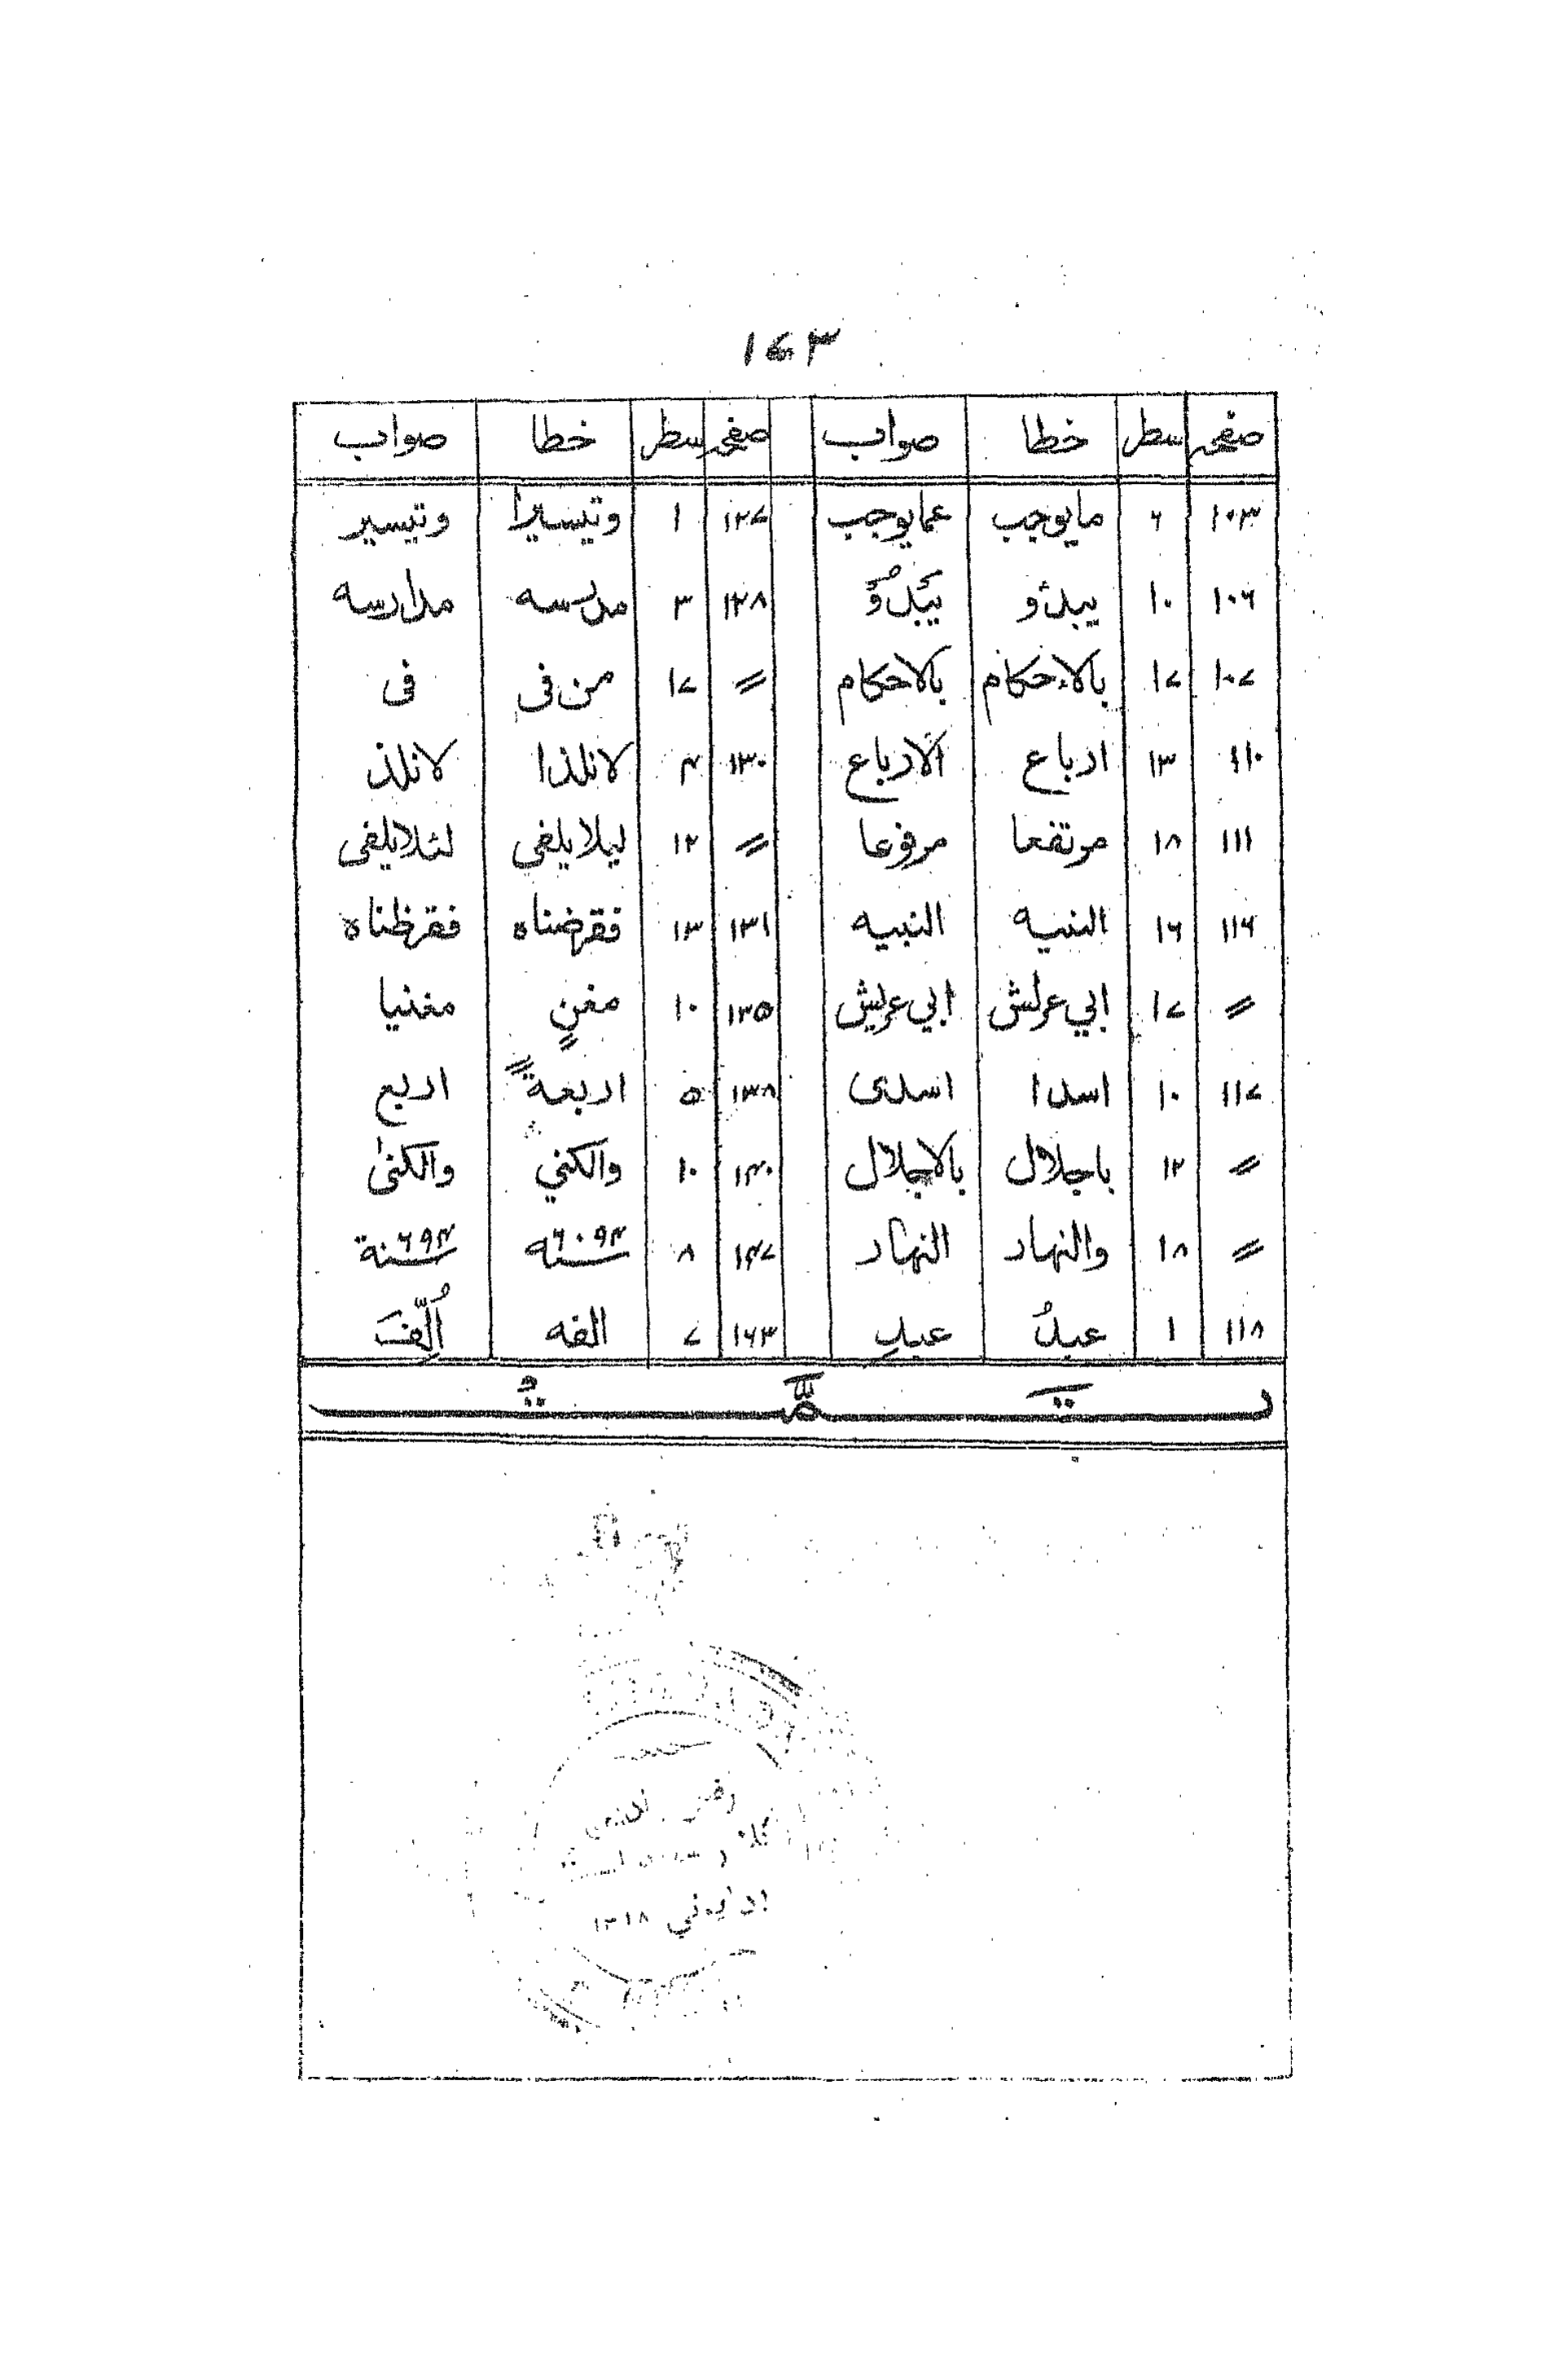 ١٦٣
صفحہ سطر خطا صواب صفحہ سطر خطا صواب
١٠٣ ٦ مایوجب عمایوجب ١٢٧ ١ وتیسیرا وتیسیر
١٠٦ ١٠ یبدؤ یَبْدُؤُ ١٢٨ ٣ مدرسه مدارسه
١٠٧ ١٧ بالاءحکام بالاحکام 〃 ١٧ من فی فی
١١٠ ١٣ ارباع الارباع ١٣٠ ٤ لاتلذا لاتلذ
١١١ ١٨ مرتفعا مرفوعا 〃 ١٢ لیلایلغی لئلایلغی
١١٦ ١٦ النبیه ١٣١ ١٣ فقرضناه فقرظناه
〃 ١٧ ابي عرلش ابي عریش ١٣٥ ١٠ مغنٍ مغنیا
١١٧ ١٠ اسدا اسدی ١٣٨ ٥ اربعة اربع
〃 ١٢ باجلال بالاجلال ١٤٠ ١٠ والکني والکنیٰ
〃 ١٨ والنهار النهار ١٤٧ ٨ سنه ٦٠٩٤ سنة ٦٩٤
١١٨ ١ عبدُ عبدِ ١٦٣ ٧ الفه اُلِّفَ
تَمَّتْ
١٣١٨